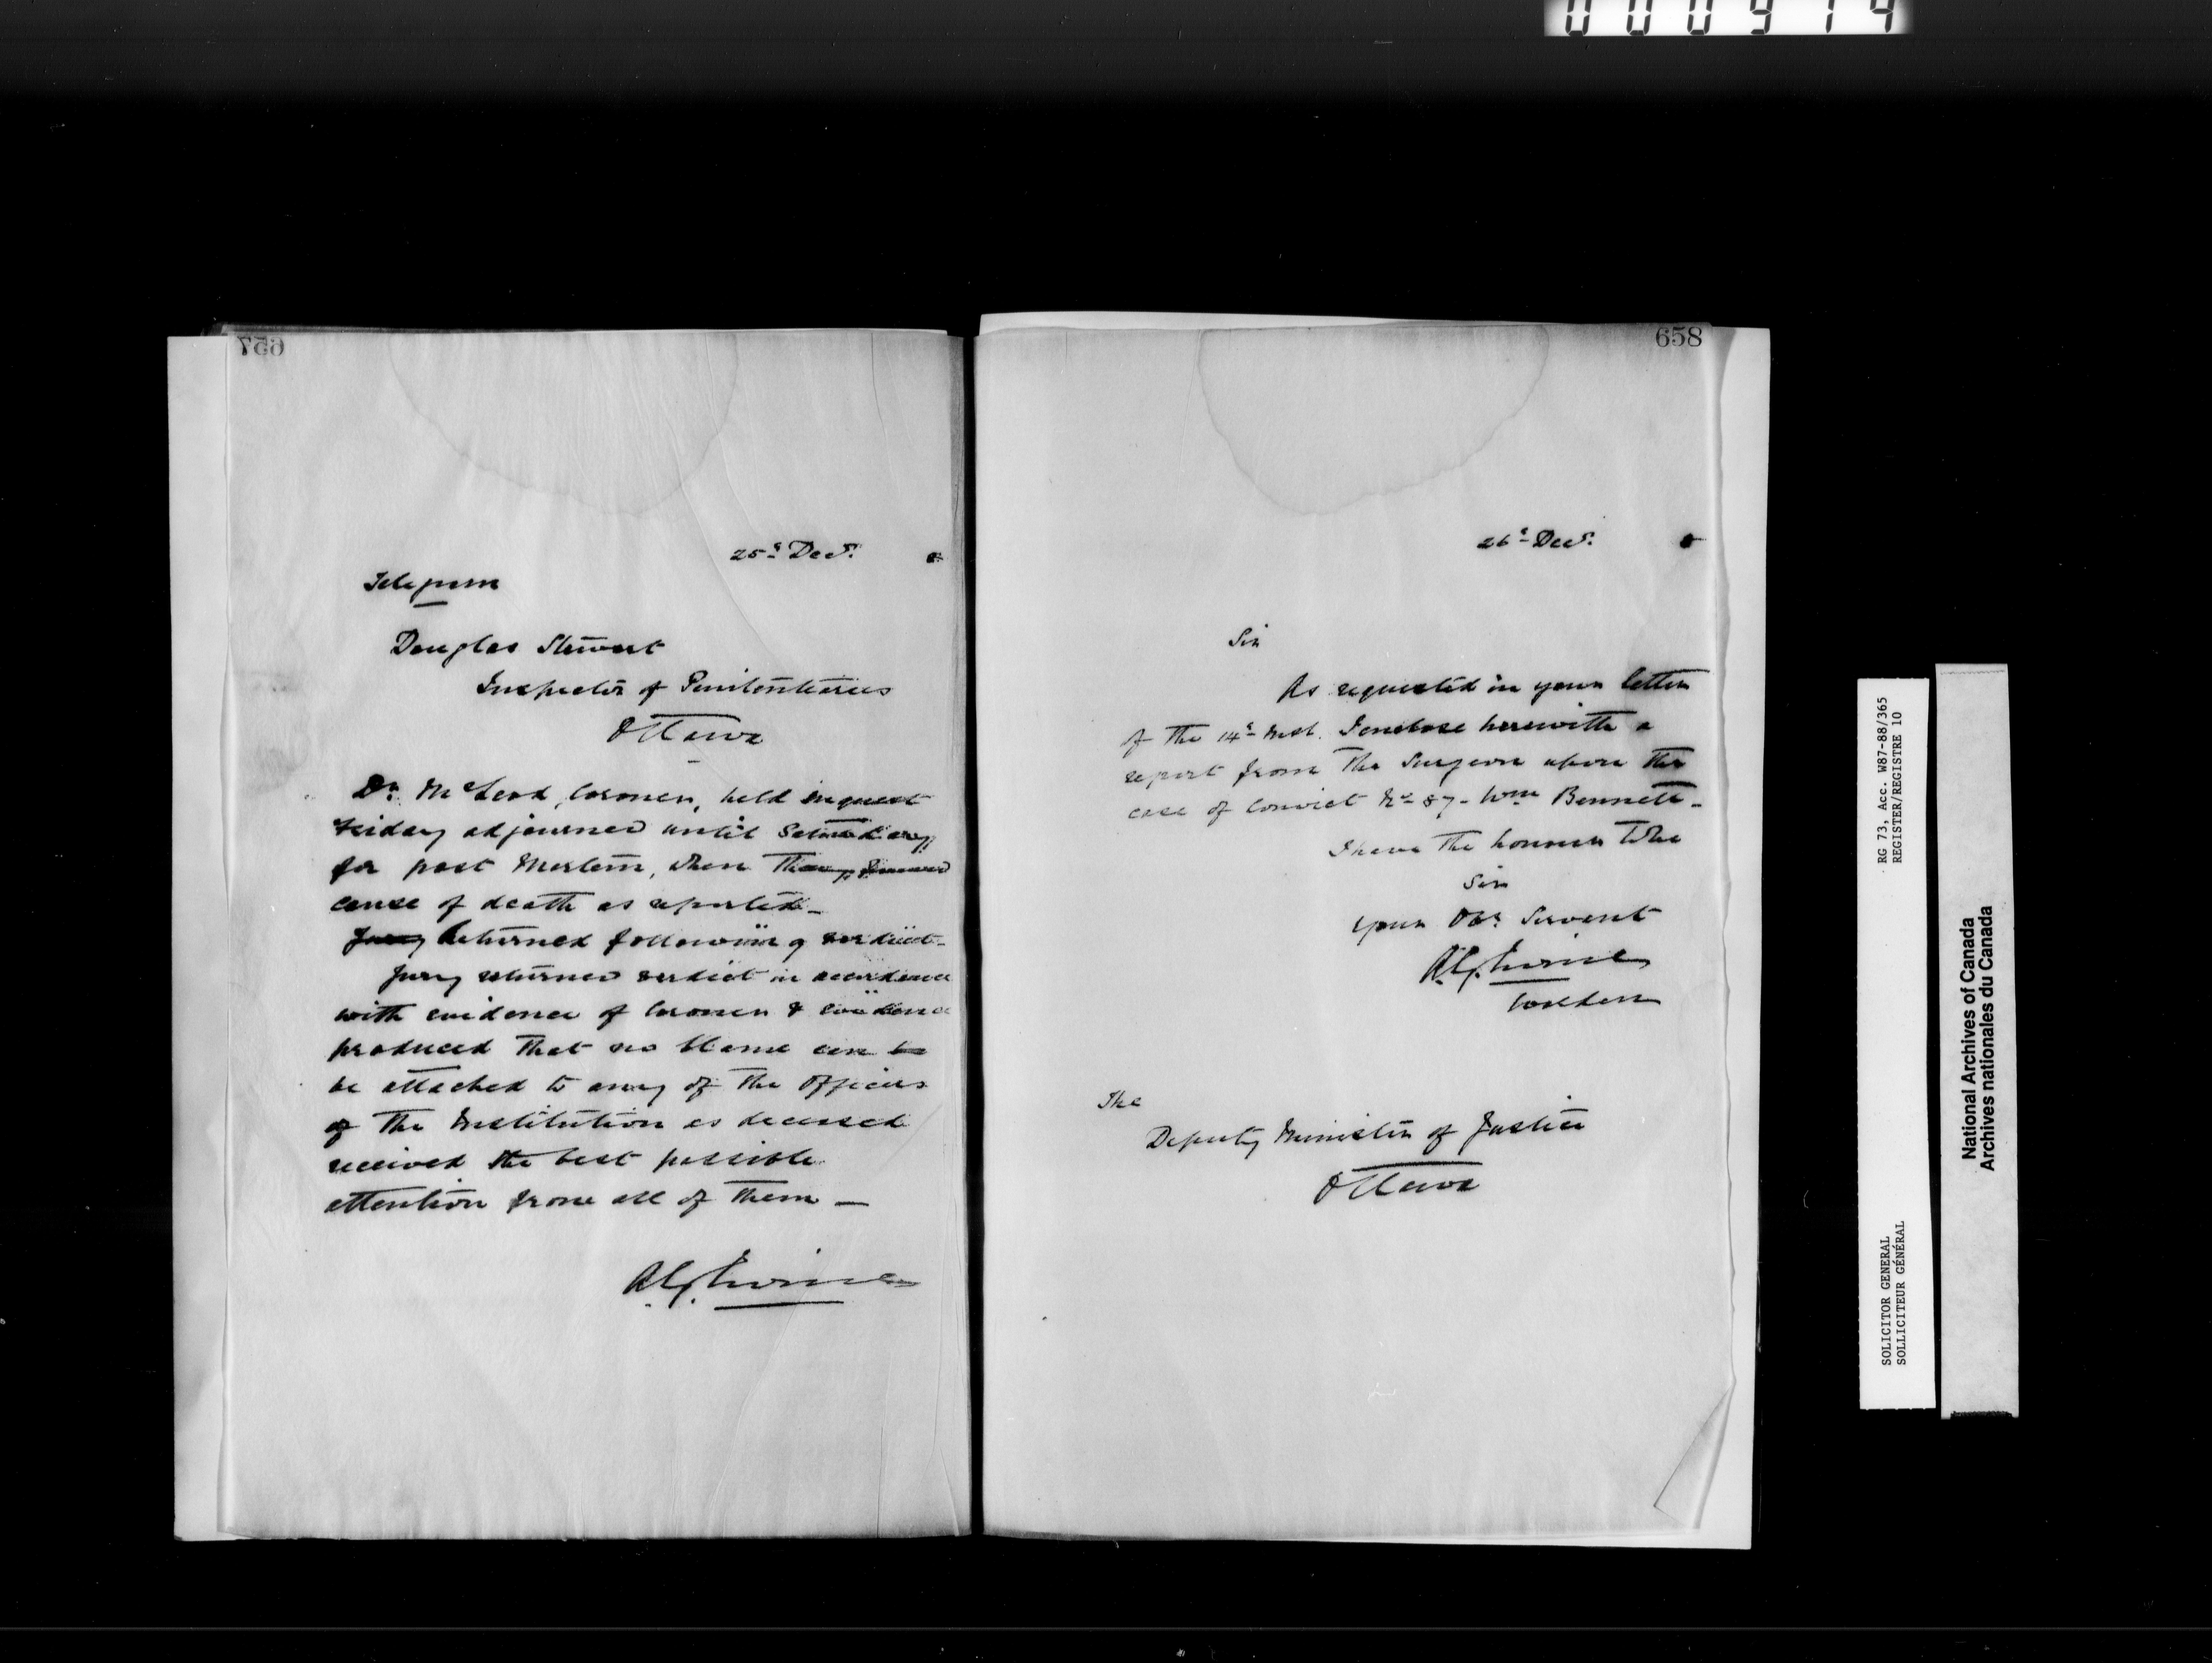 000914
657
25th Decr. 0
Telegram
Douglas Stewart
Inspector of Penitentiaries
Ottawa
Dr. McLeod, Coroner, held inquest
Friday adjourned until Saturday
for post Mortem, when they
cause of death as reported_
Jury Returned following verdict_
Jury returned verdict in accordance
with evidence of Coroner & evidence
produced that no blame can be
be attached to any of the Officers
of the Institution as deceased
received the best possible
attention from all of them —
A.G. Irvine
658
26th Decr. 0
Sir
As requested in your letter
of the 14th Inst. I enclose herewith a
report from the Surgeon upon the
case of Convict No 87 - Wm Bennett -
I have the honour to be
Sir
Your Obt. Servant
A.G. Irvine
Warden
The
Deputy Minister of Justice
Ottawa
RG 73, Acc. W87-88/365
REGISTER/REGISTRE 10
SOLICITOR GENERAL
SOLLICITEUR GÉNÉRAL
National Archives of Canada
Archives nationales du Canada